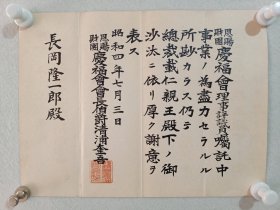 恩賜財團慶福會理事評議員囑託中
事業ノ為盡力セラルル
所尠カラス仍テ
總裁載仁親王殿下ノ御
沙汰ニ依リ厚ク謝意ヲ
表ス
昭和四年七月三日
恩賜財團慶福會會長伯爵清浦奎吾
長岡隆一郎殿